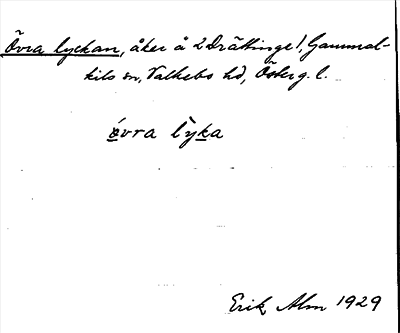 Övra lyckan, åker å 2 Drättinge!, Gammal-
kils sn, Valkebo hd, Österg. l.
óvra lỳka
Erik Alm 1929